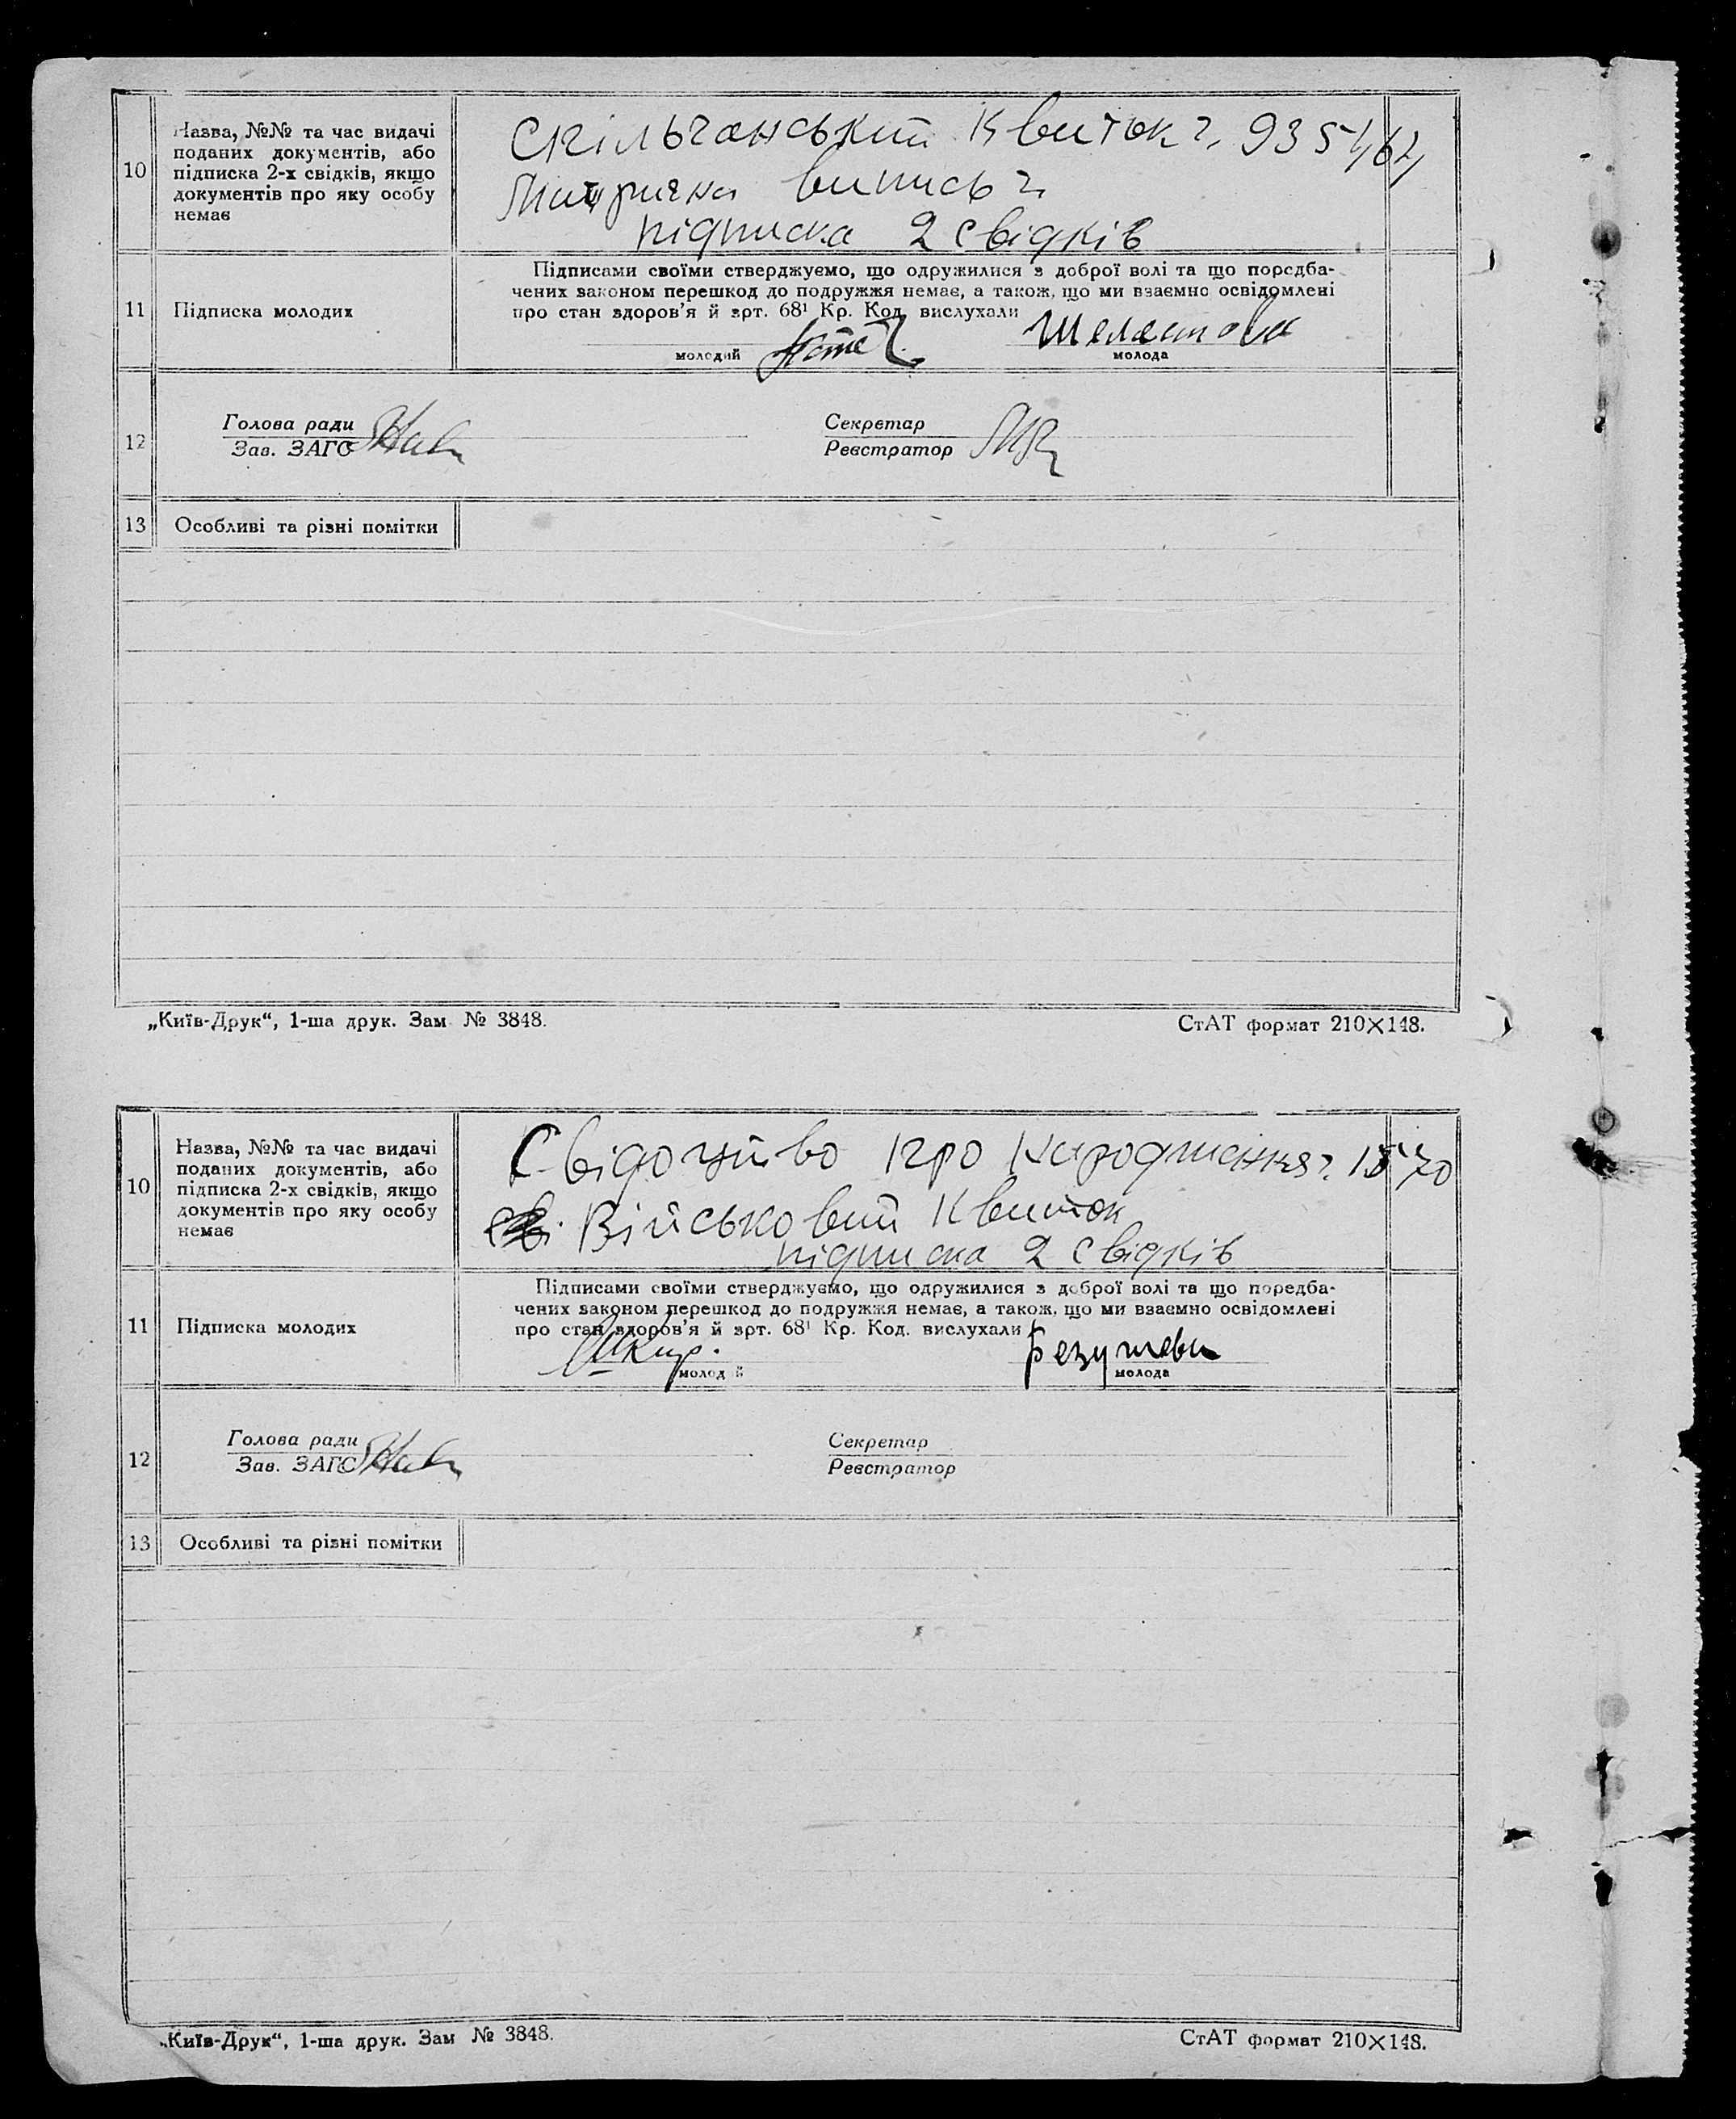 10
Назва, №№ та час видачі
поданих документів, або
підписка 2-х свідків, якщо
документів про яку особу
немає
Спільчанський квиток ч. 935464
Метрична випись ч
підписка 2 свідків
11
Підписка молодих
Підписами своїми стверджуємо, що одружилися з доброї волі та що поредба-
чених законом перешкод до подружжя немає, а також, що ми взаємно освідомлені
про стан здоров'я й арт. 68¹ Кр. Код. вислухали
молодий
Шелестова
молода
12
Голова ради
Зав. ЗАГС
Секретар
Реєстратор
13
Особливі та різні помітки
„Київ-Друк“, 1-ша друк. Зам. № 3848.
СтАТ формат 210×148.
10
Назва, №№ та час видачі
поданих документів, або
підписка 2-х свідків, якщо
документів про яку особу
немає
Свідоцтво про народження ч. 1570
Військовий квиток
підписка 2 свідків
11
Підписка молодих
Підписами своїми стверджуємо, що одружилися з доброї волі та що поредба-
чених законом перешкод до подружжя немає, а також, що ми взаємно освідомлені
про стан здоров'я й арт. 68¹ Кр. Код. вислухали
молодий
молода
12
Голова ради
Зав. ЗАГС
Секретар
Реєстратор
13
Особливі та різні помітки
„Київ-Друк“, 1-ша друк. Зам № 3848.
СтАТ формат 210×148.